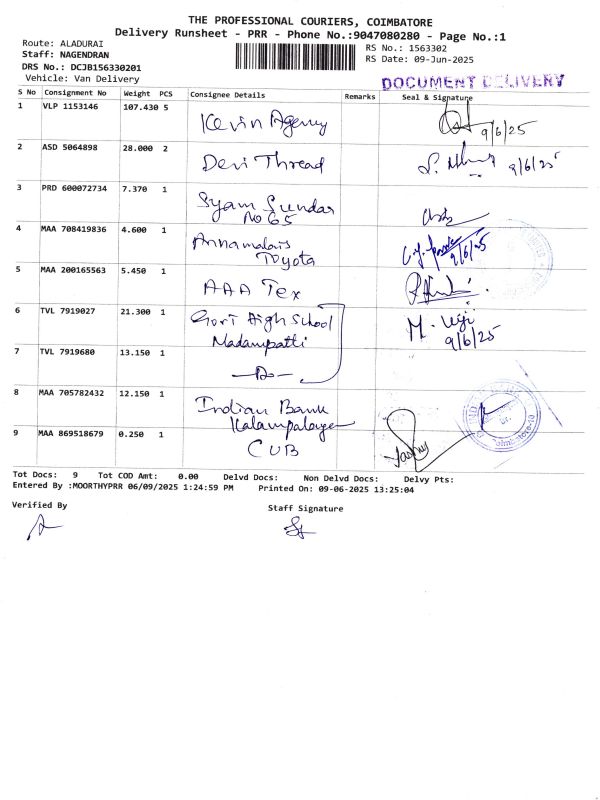 THE PROFESSIONAL COURIERS, COIMBATORE
Delivery Runsheet - PRR - Phone No.:9047080280 - Page No.:1
Route: ALADURAI
Staff: NAGENDRAN
DRS No.: DCJB156330201
Vehicle: Van Delivery
RS No.: 1563302
RS Date: 09-Jun-2025
DOCUMENT DELIVERY
S No Consignment No Weight PCS Consignee Details Remarks Seal & Signature
1 VLP 1153146 107.430 5 Kevin Agency 9/6/25
2 ASD 5064898 28.000 2 Devi Thread 9/6/25
3 PRD 600072734 7.370 1 Syam Sundar
No 65
4 MAA 708419836 4.600 1 Annamalais
Toyota 9/6/25
5 MAA 200165563 5.450 1 AAA Tex
6 TVL 7919027 21.300 1 Govt High School
Madampatti
M. 9/6/25
7 TVL 7919680 13.150 1
8 MAA 705782432 12.150 1 Indian Bank
Kalampalayam
9 MAA 869518679 0.250 1 CUB
Tot Docs: 9 Tot COD Amt: 0.00 Delvd Docs: Non Delvd Docs: Delvy Pts:
Entered By :MOORTHYPRR 06/09/2025 1:24:59 PM Printed On: 09-06-2025 13:25:04
Verified By
Staff Signature